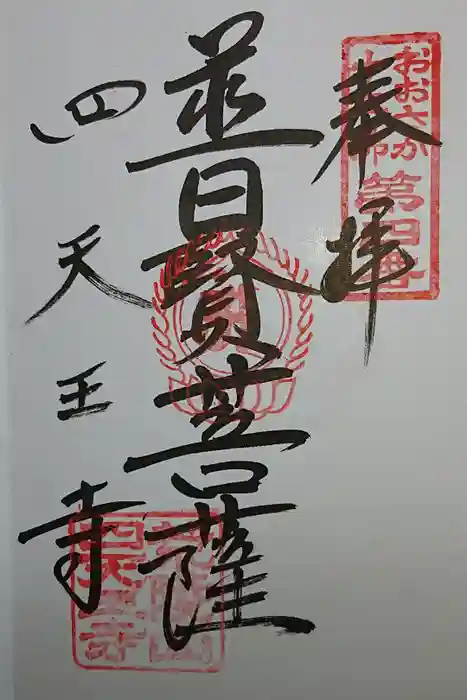 奉拝
おおさか十三佛
第四番
普賢菩薩
四天王寺
四天王寺